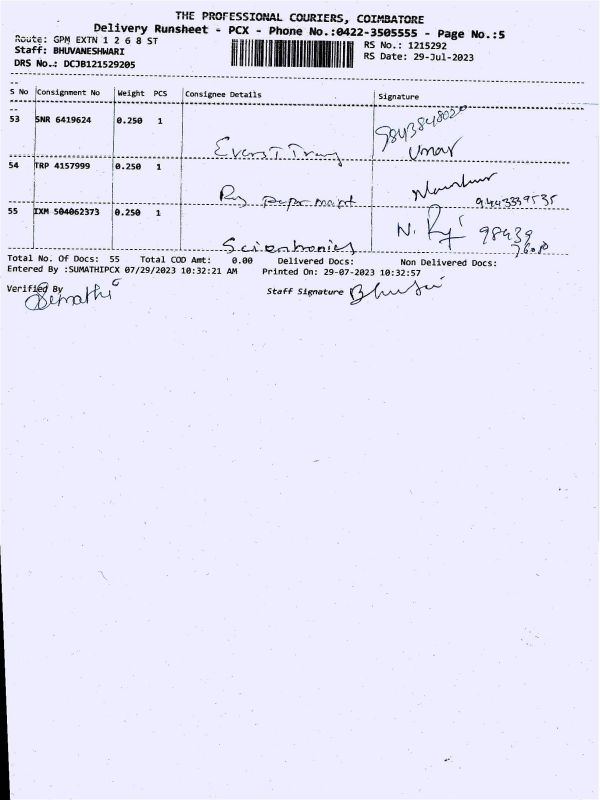 THE PROFESSIONAL COURIERS, COIMBATORE
Delivery Runsheet - PCX - Phone No.:0422-3505555 - Page No.:5
Route: GPM EXTN 1 2 6 8 ST
RS No.: 1215292
Staff: BHUVANESHWARI
RS Date: 29-Jul-2023
DRS No.: DCJB121529205
S No Consignment No Weight PCS Consignee Details Signature
53 SNR 6419624 0.250 1 9843848020
Umar
54 TRP 4157999 0.250 1
9443339535
55 IXM 504062373 0.250 1 N. 98439
Scientronics
Total No. Of Docs: 55 Total COD Amt: 0.00 Delivered Docs: Non Delivered Docs:
Entered By :SUMATHIPCX 07/29/2023 10:32:21 AM Printed On: 29-07-2023 10:32:57
Verified By Sumathi Staff Signature